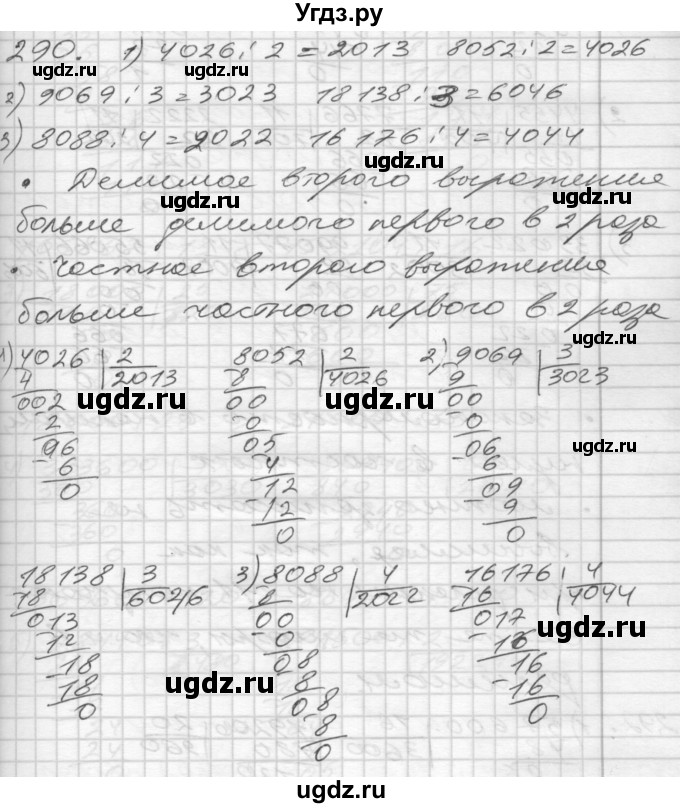 Угдз.ру
290. 1) 4026 : 2 = 2013 8052 : 2 = 4026
2) 9069 : 3 = 3023 18138 : 3 = 6046
3) 8088 : 4 = 2022 16176 : 4 = 4044
• Делимое второго выражения
больше делимого первого в 2 раза
• Частное второго выражения
больше частного первого в 2 раза
1) 4026 | 2 8052 | 2 2) 9069 | 3
4 2013 8 4026 9 3023
002 00 00
2 0 0
96 05 06
6 4 6
0 12 09
12 9
0 0
18138 | 3 3) 8088 | 4 16176 | 4
18 6046 8 2022 16 4044
013 00 017
12 0 16
18 08 16
18 8 16
0 08 0
8
0
ugdz.ru
ugdz.ru
ugdz.ru
ugdz.ru
ugdz.ru
ugdz.ru
ugdz.ru
ugdz.ru
ugdz.ru
ugdz.ru
ugdz.ru
ugdz.ru
ugdz.ru
ugdz.ru